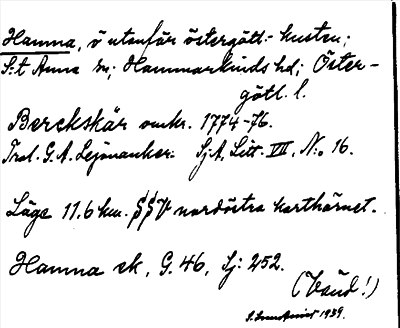 Hamna, ö utanför östergötl.-kusten;
S:t Anna sn; Hammarkinds hd; Öster-
götl. l.
Berckskär omkr. 1774-76.
Trol. G. A. Lejonancker. SjA, Litt. VII, No 16.
Läge 11.6 km. SSV nordöstra karthörnet.
Hamna ek, G. 46, Sj: 252.
(Vänd!)
1939.